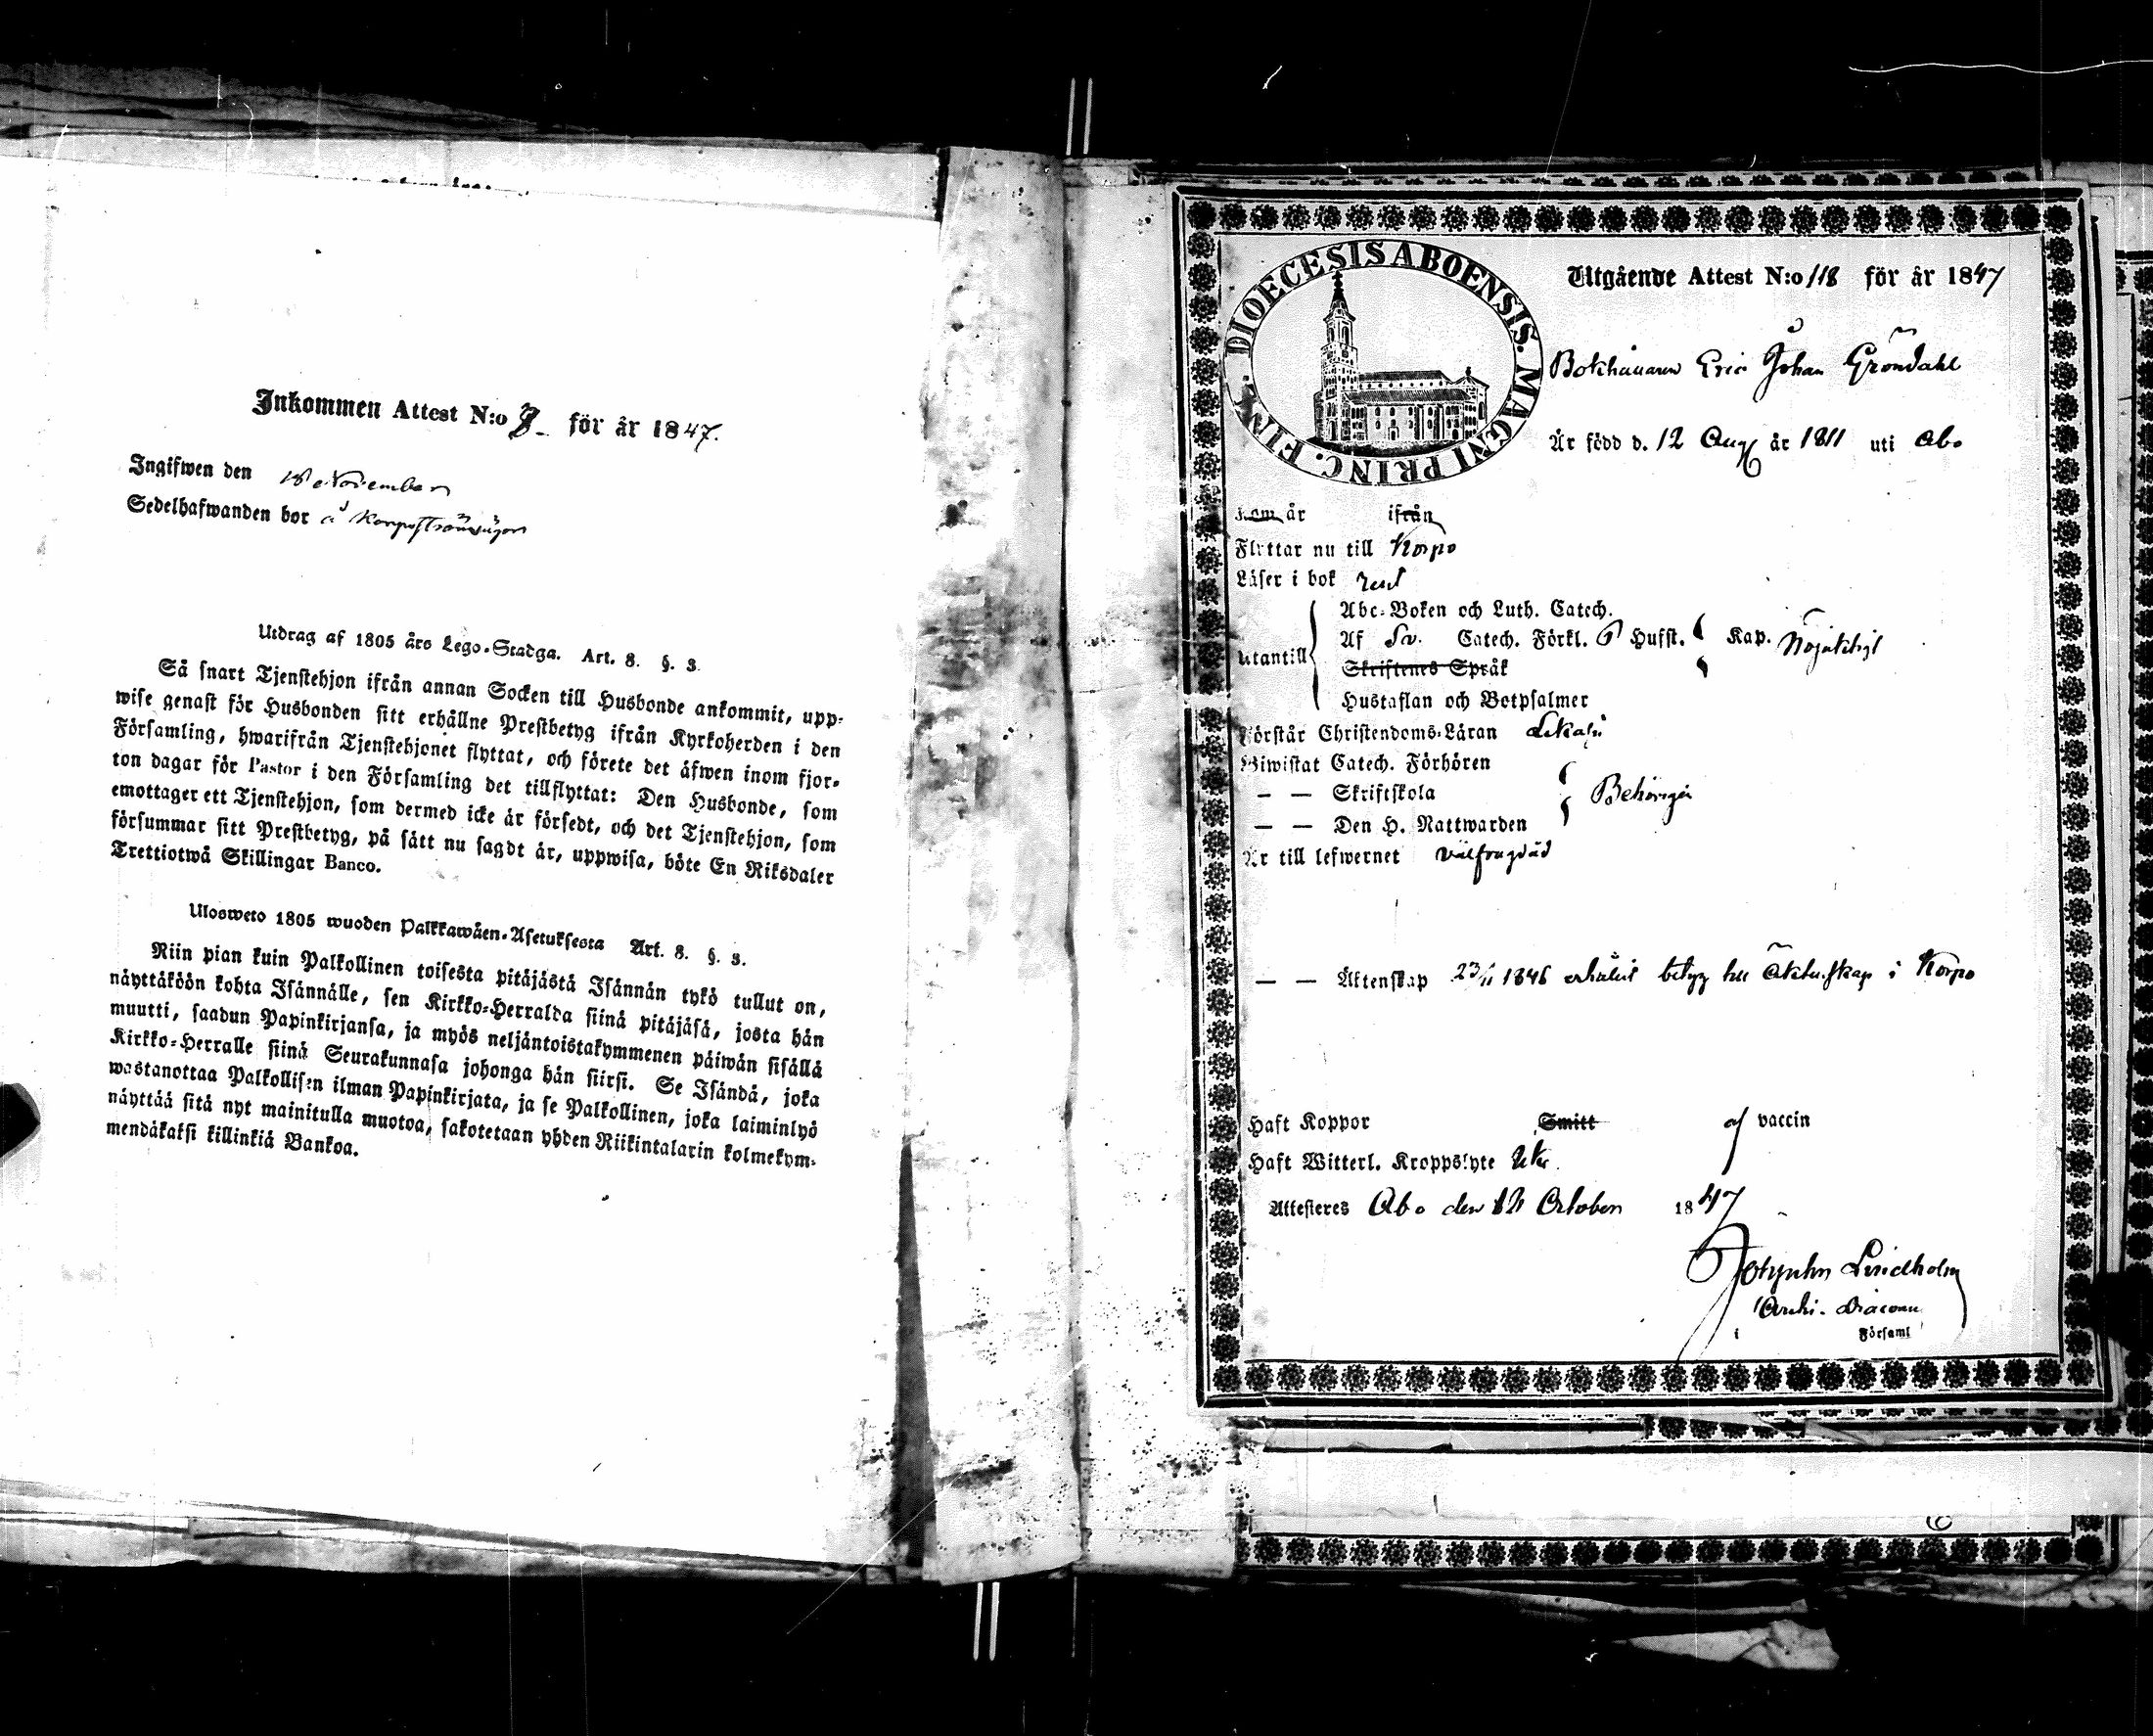 Inkommen Attest N:o 7 för år 1847.
Ingifwen den 18 November
Sedelhafwanden bor å Korpoströmsügen
Utdrag af 1805 års Lego-Stadga. Art. 8. §. 3.
Så snart Tjenstehjon ifrån annan Socken till Husbonde ankommit, upp-
wise genast för Husbonden sitt erhållne Prestbetyg ifrån Kyrkoherden i den
Församling, hwarifrån Tjenstehjonet flyttat, och förete det äfwen inom fjor-
ton dagar för Pastor i den Församling det tillflyttat: Den Husbonde, som
emottager ett Tjenstehjon, som dermed icke är försedt, och det Tjenstehjon, som
försummar sitt Prestbetyg, på sätt nu sagdt är, uppwisa, böte En Riksdaler
Trettiotwå Skillingar Banco.
Ulosweto 1805 wuoden Palkkawäen-Asetuksesta Art. 8. §. 3.
Niin pian kuin Palkollinen toisesta pitäjästä Isännän tykö tullut on,
näyttäköön kohta Isännälle, sen Kirkko-Herralda siinä pitäjäsä, josta hän
muutti, saadun Papinkirjansa, ja myös neljäntoistakymmenen päiwän sisällä
Kirkko-Herralle siinä Seurakunnasa johonga hän siirsi. Se Isändä, joka
wastanottaa Palkollisen ilman Papinkirjata, ja se Palkollinen, joka laiminlyö
näyttää sitä nyt mainitulla muotoa, sakotetaan yhden Riikintalarin kolmekym-
mendäkaksi killinkiä Bankoa.
DIOECESIS ABOENSIS. MAGNI PRINC. FINL.
Utgående Attest N:o 118 för år 1847
Bokhållaren Eric Johan Gröndahl
Är född d. 12 Aug är 1811 uti Abo
Kom år ifrån
Flyttar nu till Korpo
Läser i bok rent
Abc-Boken och Luth. Catech.
Utantill Af Sv. Catech. Förkl. Hufst. Kap. Nöjaktigt
Skriftenes Språk
Hustaflan och Botpsalmer
Förstår Christendoms-Läran
Biwistat Catech. Förhören
— — Skriftskola Behörigen
— — Den H. Nattwarden
Är till lefwernet välfrägdad
— — Äktenskap 23/11 1846 erhållit betyg till äktenskap i Korpo
Haft Koppor Smitt af vaccin
Haft Witterl. Kroppslyte
Attesteres Abo den 12 October 1847
Lindholm
Archi-Diaconus
i Församl